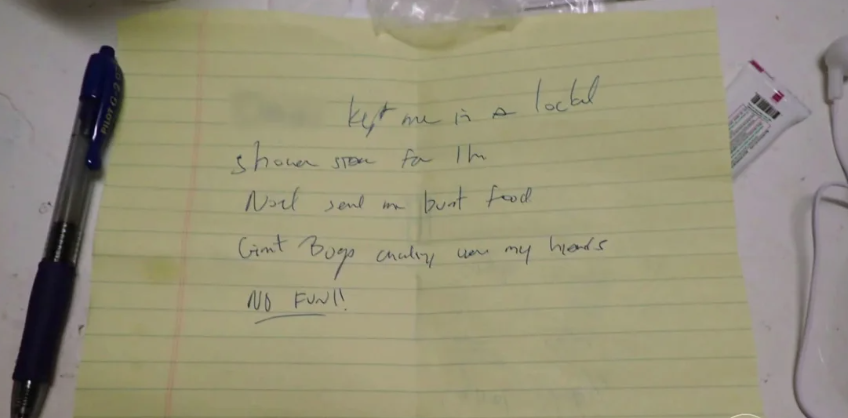 kept me in a locked
shower stall for 1h
Noel send me burnt food
Giant Bugs crawling over my hands
NO FUN!!
PILOT G-2